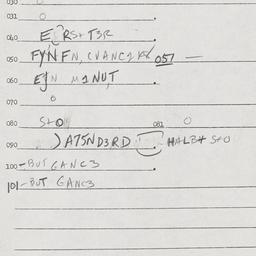 030
031 0
040 E RS+ T3R
050 FYN FN, CVANC1 057 —
060 EJN M1NUT
070 0
080 S+O 081 0
090 )A75ND3RD HALB# S+O
100 -BUT GANC3
101 -BUT GANC3